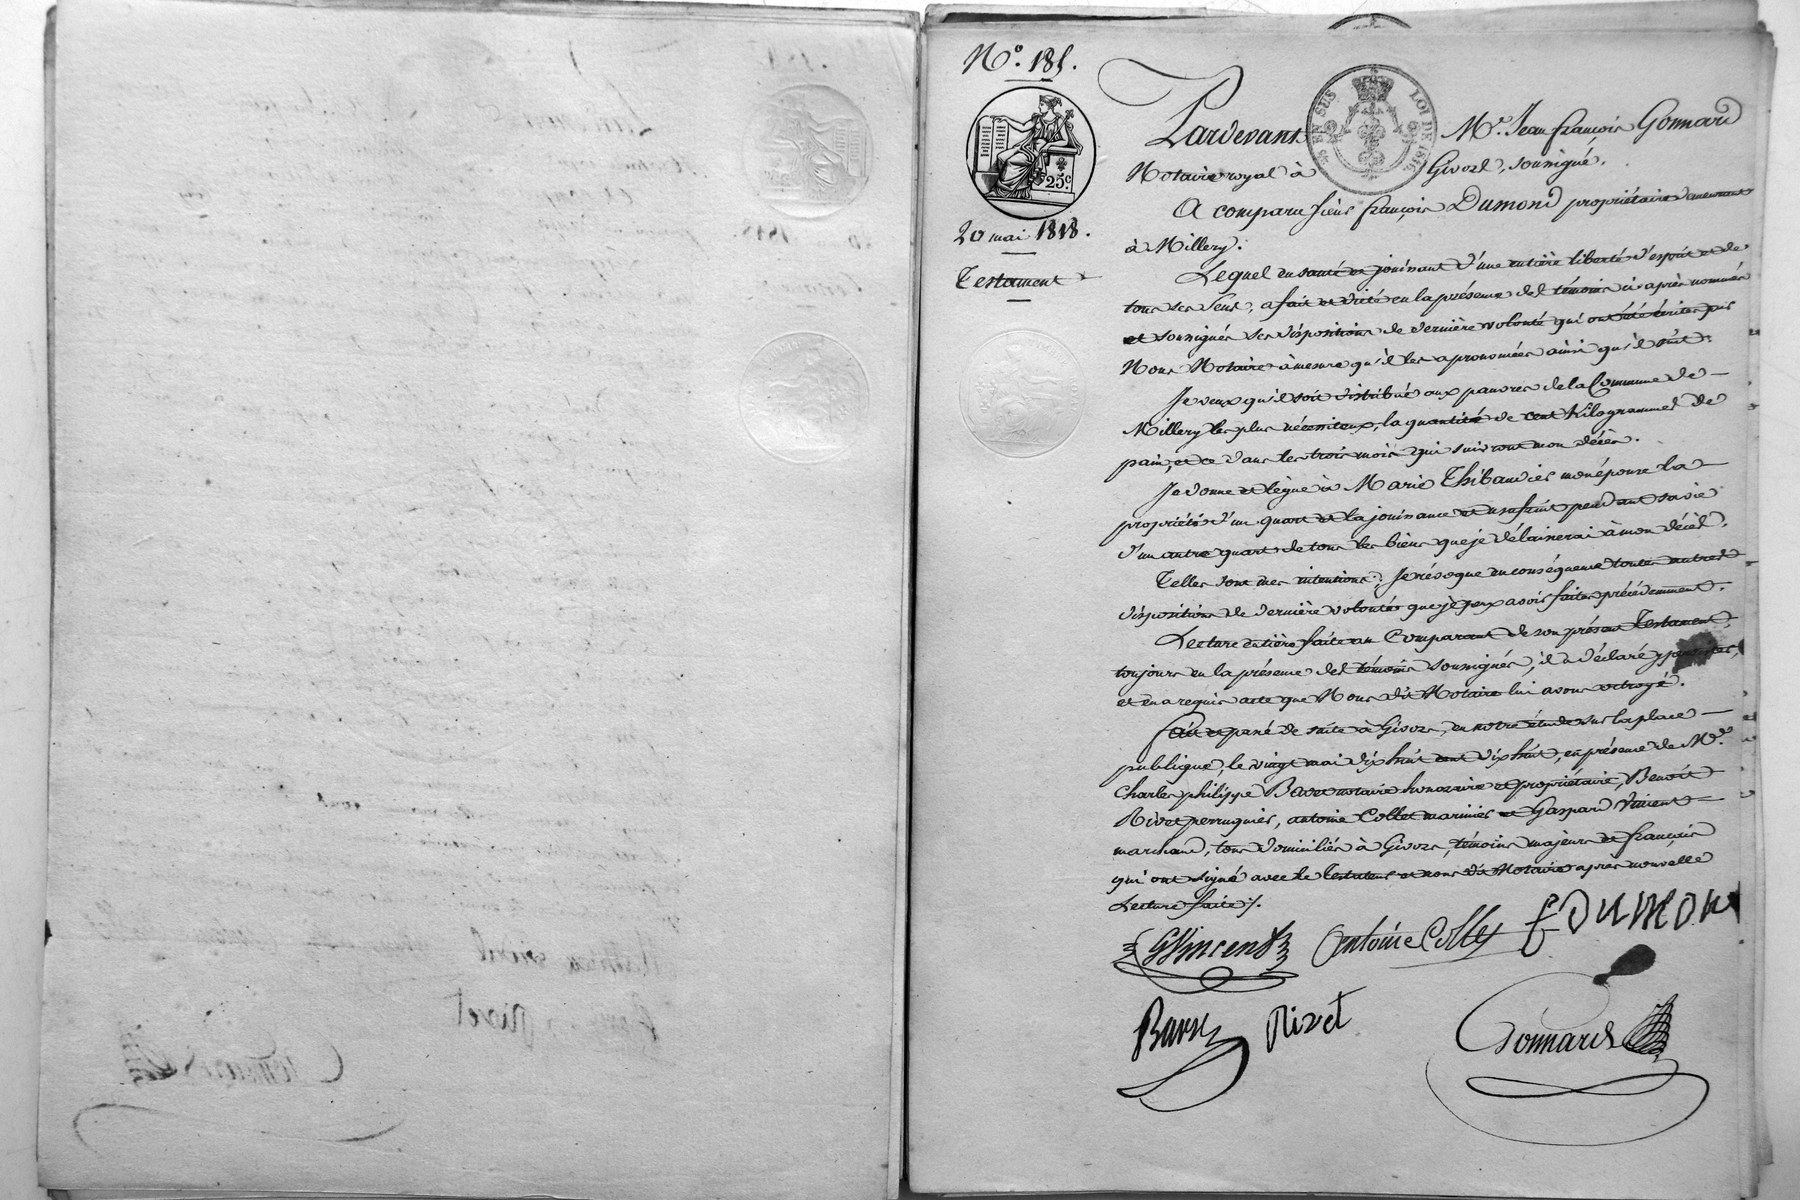 N.º 185.
25c.
20 mai 1818.
Testament
EN SUS LOI DE 1816
Pardevant Mr. Jean françois Gonnard
Notaire royal à Givors, soussigné.
A comparu sieur françois Dumond propriétaire demeurant
à Millery.
Lequel en santé et jouissant d'une entière liberté d'esprit et de
tous ses sens, a fait et dicté en la présence des témoins ci après nommés
et soussignés ses dispositions de dernière volonté qui ont été écrites par
Nous Notaire à mesure qu'il les a prononcées ainsi qu'il suit:
Je veux qu'il soit distribué aux pauvres de la Commune de —
Millery les plus nécessiteux, la quantité de cent Kilogrammes de
pain, et ce dans les trois mois qui suivront mon décès.
Je donne et lègue à Marie Thibaudier mon épouse la —
propriété d'un quart et la jouissance et usufruit pendant sa vie
d'un autre quart de tous les biens que je délaisserai à mon décès.
Telles sont mes intentions: Je révoque en conséquence toutes autres
dispositions de dernière volonté que je peux avoir faites précédemment.
Lecture entière faite au Comparant de son présent Testament,
toujours en la présence des témoins soussignés, il a déclaré y persister,
et en a requis acte que Nous dit Notaire lui avons octroyé.
fait et passé de suite à Givors, en notre étude sur la place —
publique, le vingt mai dix huit cent dix huit, en présence de Mrs.
Charles philippe notaire honoraire et propriétaire, Benoît
Rivet perruquier, antoine Collet marinier et Gaspard Vincent —
marchand, tous domiciliés à Givors, témoins majeurs et français
qui ont signé avec le Testateur et nous dit Notaire après nouvelle
Lecture faite ./.
GVincent Antoine Collet f DUMON
Rivet Gonnard